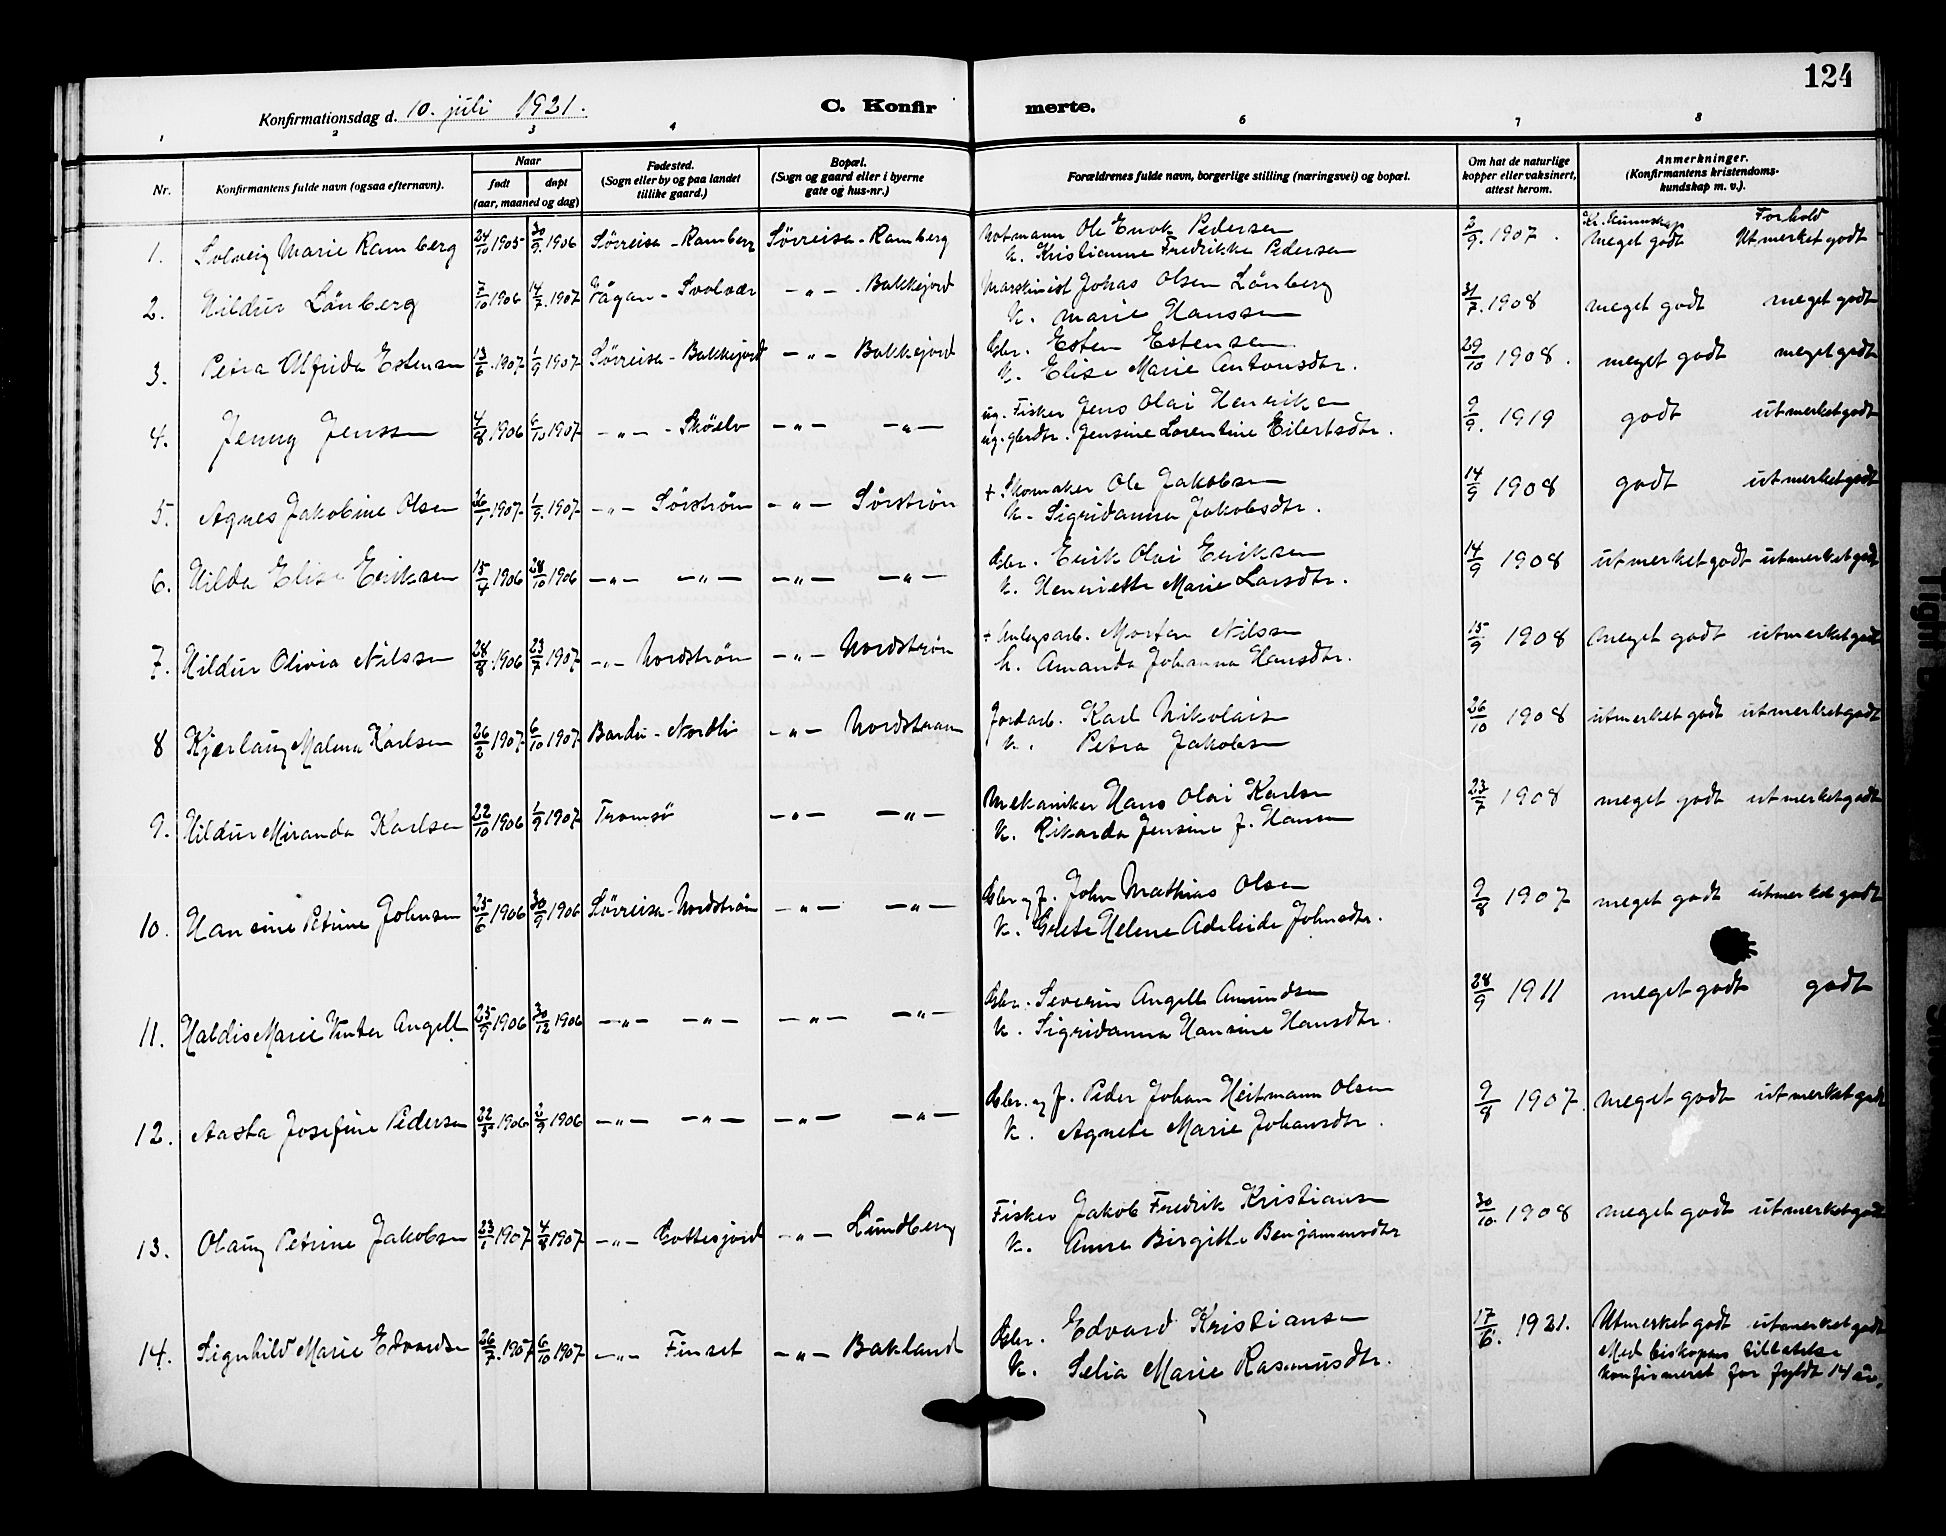 124
Konfirmationsdag d. 10. juli 1921. C. Konfirmerte.
1 2 3 4 6 7 8
Nr. Konfirmantens fulde navn (ogsaa efternavn). Naar født døpt (aar, maaned og dag) Fødested. (Sogn eller by og paa landet tillike gaard.) Bopæl. (Sogn og gaard eller i byerne gate og hus-nr.) Forældrenes fulde navn, borgerlige stilling (næringsvei) og bopæl. Om hat de naturlige kopper eller vaksinert, attest herom. Anmerkninger. (Konfirmantens kristendomskundskap m. v.).
Kr. kunnskap Forhold
1. Solveig Marie Ramberg 24/10 1905 30/9 1906 Sörreisa - Ramberg Sörreisa - Ramberg Notmann Ole Enok Pedersen 2/9. 1907. meget godt Utmerket godt
k. Kristianne Fredrikke Pedersen
2. Hildur Lönberg 7/10 1906 14/7. 1907 Vågan - Svolvær -„- Bakkejord Marskinist Johas Olsen Lönberg 31/7. 1908 meget godt meget godt
k. Marie Hanssen
3. Petra Alfrida Estensen 13/6. 1907 1/9 1907 Sörreisa - Bakkejord -„- Bakkejord Gbr. Esten Estensen 29/10 1908. meget godt meget godt
k. Elise Marie Antonsdtr.
4. Jenny Jenssen 4/8 1906 6/10 1907 -„- - Sköelv -„- -„- ug. Fisker Jens Olai Henriksen 9/9. 1919 godt utmerket godt
ug. gbrdtr. Jensine Lorentine Eilertsdtr.
5. Agnes Jakobine Olsen 26/1 1907 1/9. 1907 -„- Sörströn -„- Sörströn + Skomaker Ole Jakobsen 14/9 1908 godt utmerket godt
k. Sigridanna Jakobsdtr.
6. Hilda Elise Eriksen 15/4 1906 28/10 1906 -„- -„- -„- -„- Gbr. Erik Olai Eriksen 14/9 1908 utmerket godt utmerket godt
k. Henriette Marie Larsdtr.
7. Hildur Olivia Nilssen 28/8 1906 23/7 1907 -„- Nordströn -„- Nordströn + Anlegsarb. Morten Nilssen 15/9 1908 meget godt utmerket godt
k. Amanda Johanna Hansdtr.
8 Kjærlaug Malena Karlsen 26/2 1907 6/10 1907 Bardu - Nordli -„- Nordstraan Jordarb. Karl Nikolaisen 26/10 1908 utmerket godt utmerket godt
k. Petra Jakobsen
9. Hildur Miranda Karlsen 22/10 1906 1/9 1907 Tromsö -„- -„- Mekaniker Hans Olai Karlsen 23/7 1908 meget godt utmerket godt
k. Rikarda Jensine J. Hansen
10. Hansine Petrine Johnsen 25/6 1906 30/9 1906 Sörreisa - Nordströn -„- -„- Gbr og f. John Mathias Olsen 9/8 1907 meget godt utmerket godt
k. Grete Helene Adeleide Johnsdtr.
11. Haldis Marie Vinter Angell 25/9 1906 30/12 1906 -„- -„- -„- -„- Gbr. Severin Angell Amundsen 28/9 1911 meget godt godt
k. Sigridanna Hansine Hansdtr.
12. Aasta Josefine Pedersen 22/5 1906 2/9 1906 -„- -„- -„- -„- Gbr. og f. Peder Johan Heitmann Olsen 9/8 1907. meget godt utmerket godt
k. Agnete Marie Johansdtr.
13. Olaug Petrine Jakobsen 23/1 1907 4/8 1907 -„- Gottesjord -„- Lundberg Fisker Jakob Fredrik Kristiansen 30/10. 1908 meget godt utmerket godt
k. Anne Birgitte Benjaminsdtr
14. Signhild Marie Edvardsen 26/7. 1907 6/10 1907 -„- Finset -„- Bakland Gbr. Edvard Kristiansen 17/6. 1921. Utmerket godt utmerket godt
k. Selia Marie Rasmusdtr. Med biskopens tillatelse
konfirmeret før fyldt 14 år.